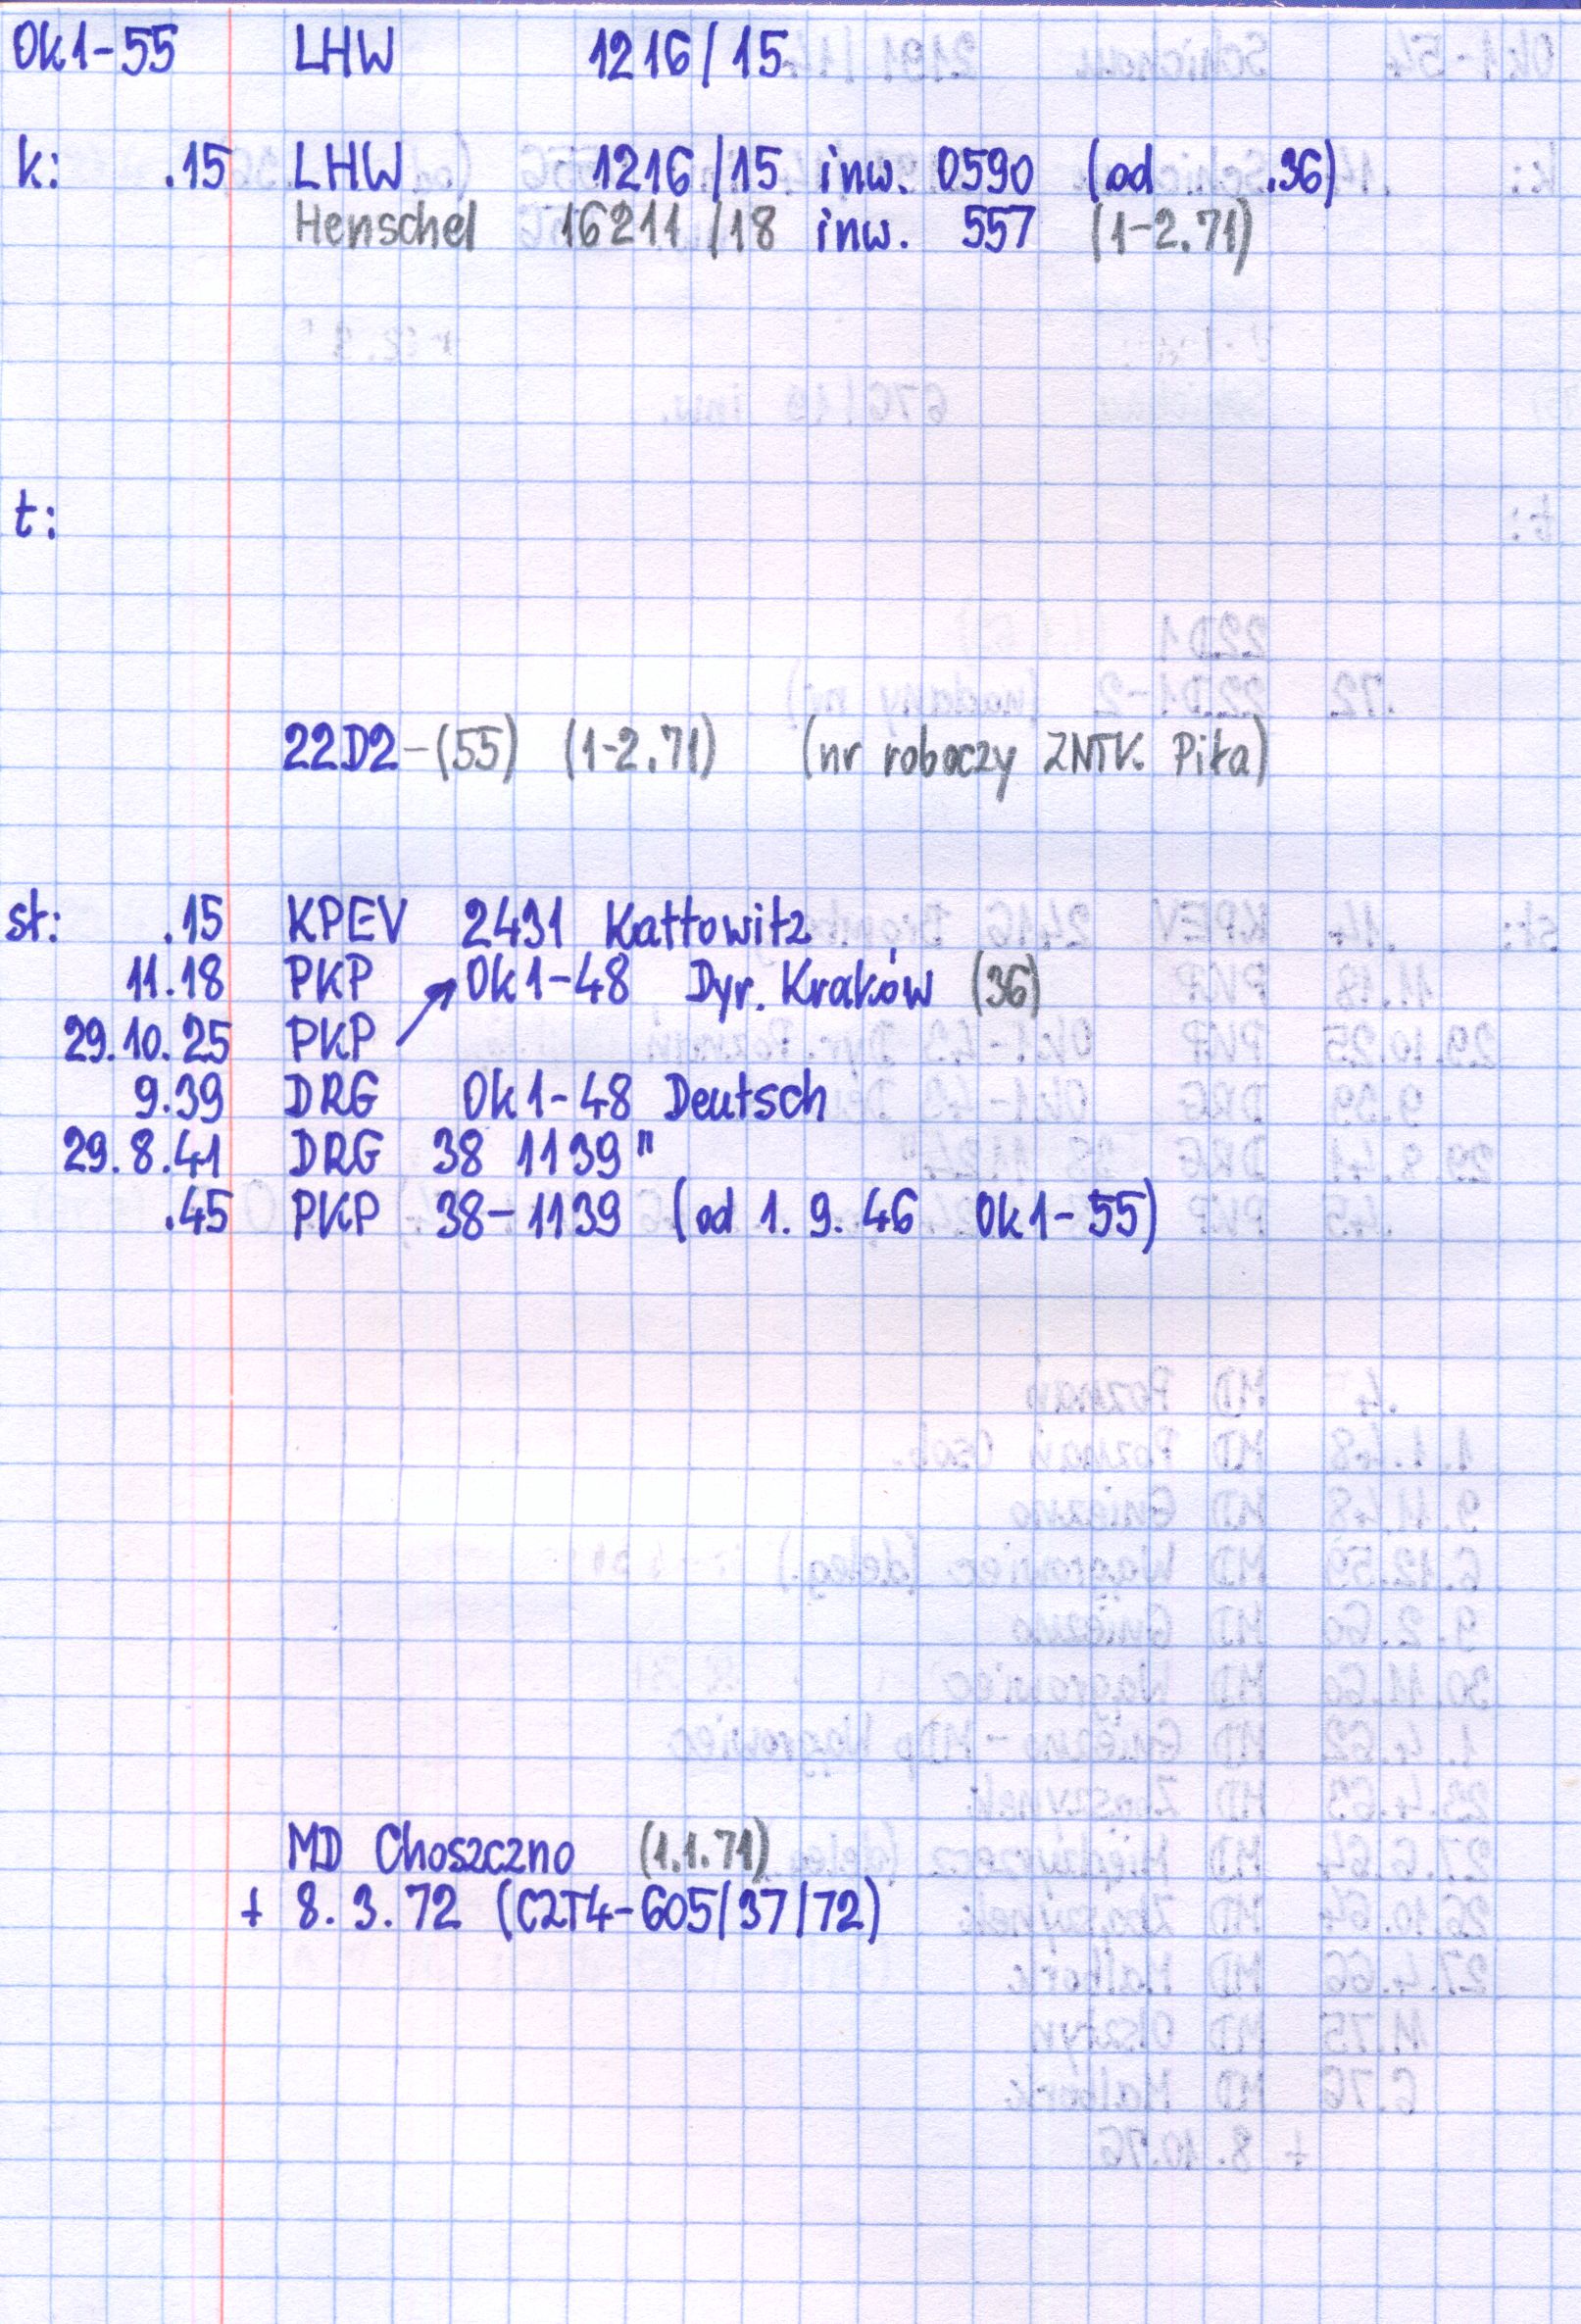 Ok1-55 LHW 1216/15
k: .15 LHW 1216/15 inw. 0590 (od .36)
Henschel 16211/18 inw. 557 (1-2.71)
t:
22D2-(55) (1-2.71) (nr roboczy ZNTK. Piła)
st: .15 KPEV 2431 Kattowitz
11.18 PKP Ok1-48 Dyr. Kraków (36)
29.10.25 PKP
9.39 DRG Ok1-48 Deutsch
29.8.41 DRG 38 1139"
.45 PKP 38-1139 (od 1.9.46 Ok1-55)
MD Choszczno (1.1.71)
+ 8.3.72 (C2T4-605/37/72)